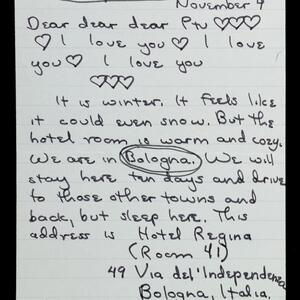 November 9
Dear dear dear Ptu ♡♡♡
♡ I love you ♡ I love
you ♡ I love you
♡♡♡
It is winter. It feels like
it could even snow. But the
hotel room is warm and cozy.
We are in Bologna. We will
stay here ten days and drive
to those other towns and
back, but sleep here. This
address is Hotel Regina
(Room 41)
49 Via del'Independenza
Bologna, Italia.